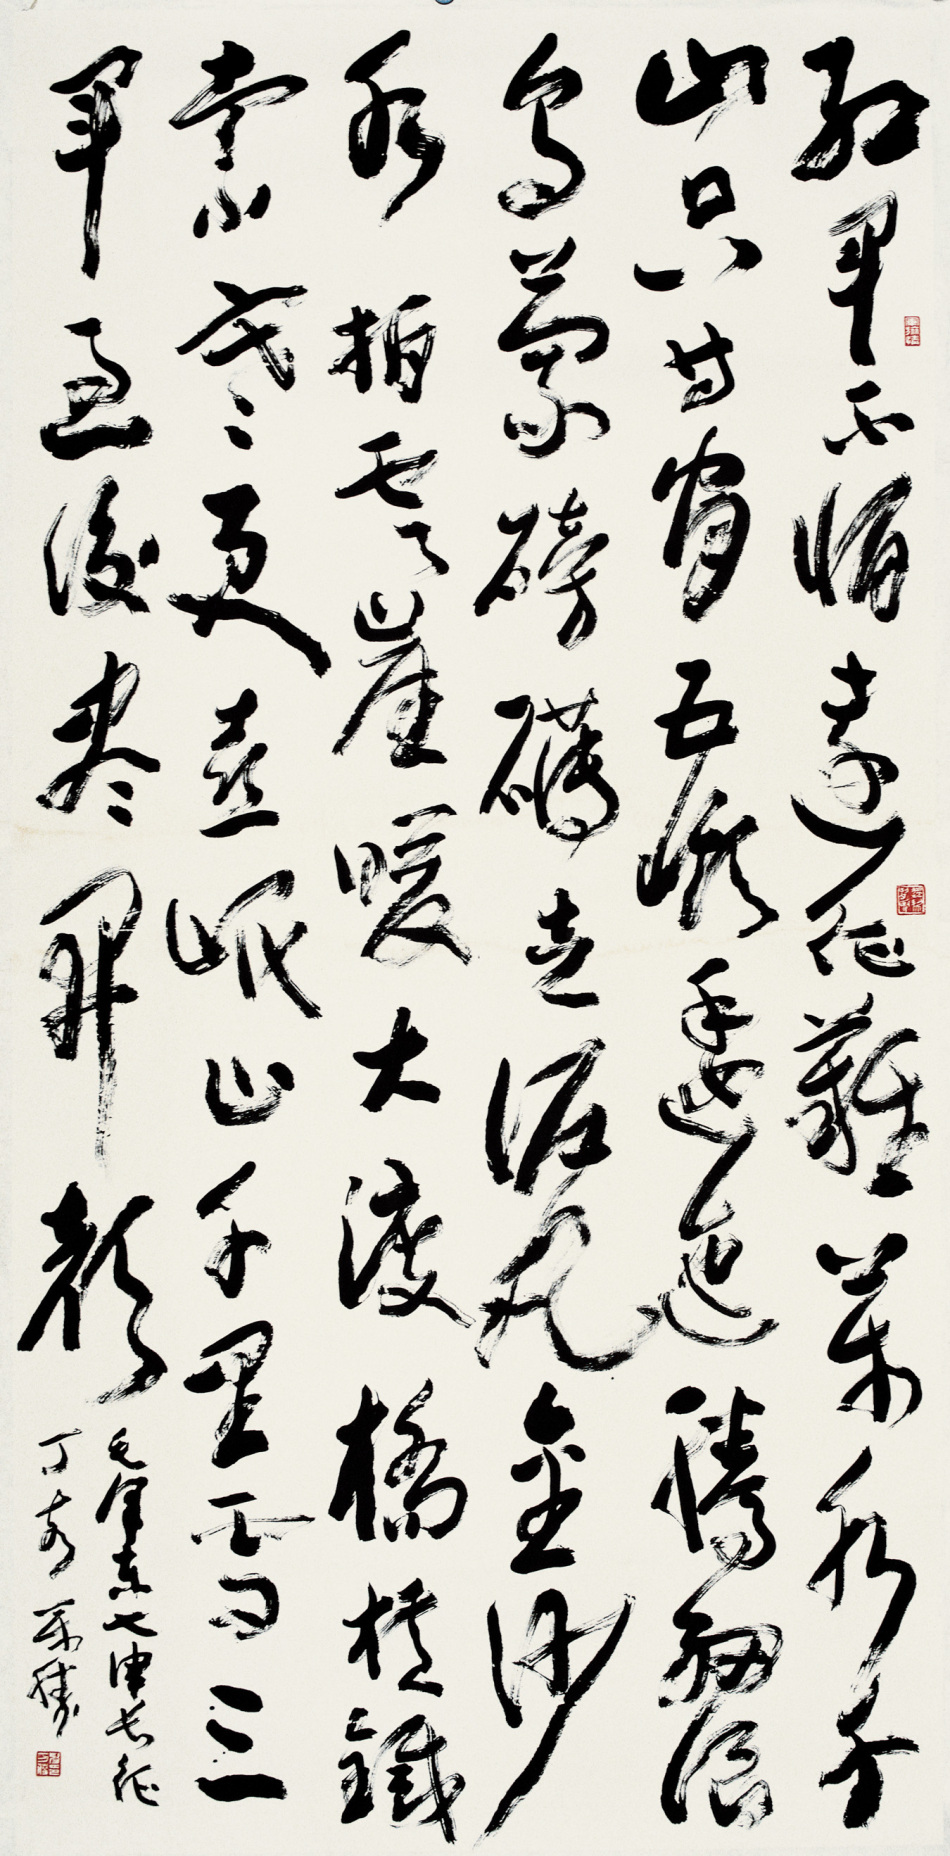 紅軍不怕遠征難萬水千
山只等閑五嶺逶迤騰細浪
烏蒙磅礴走泥丸金沙
水拍雲崖暖大渡橋橫鐵
索寒更喜岷山千里雪三
軍過後盡開顏
毛澤東七律長征
丁亥